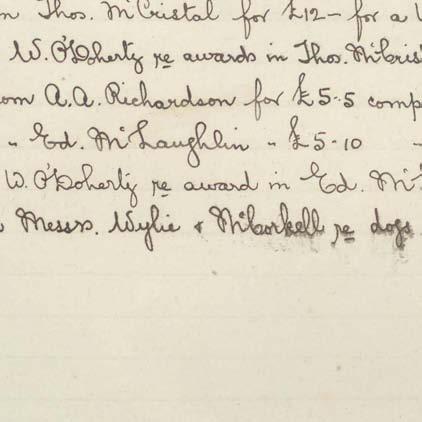 m Thos. McCristal for £12 - for a
W. O'Doherty re awards in Thos. McCris
om A.A. Richardson for £5-5 comp
" Ed. McLaughlin " £5-10 -
W. O'Doherty re award in Ed. Mc
Messrs. Wylie & McCorkell re dogs